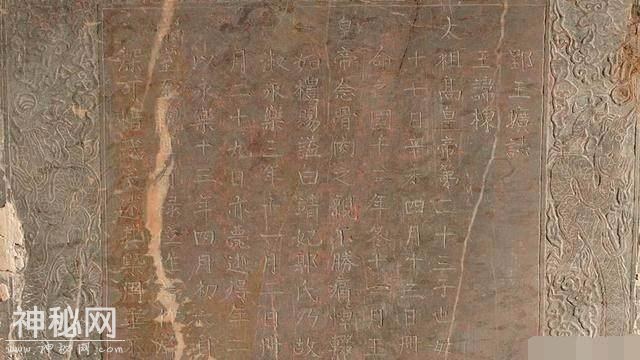 郢王壙誌
王諱棟
太祖高皇帝第二十三子也母
十七日辛未四月十三日冊
命之國十二年冬十一月王
皇帝念骨肉之親不勝痛悼輟
如禮賜謚曰靖妃郭氏乃故
淑永樂三年十一月二日冊
月二十九日亦薨逝得年二
以永樂十三年四月初
神秘网